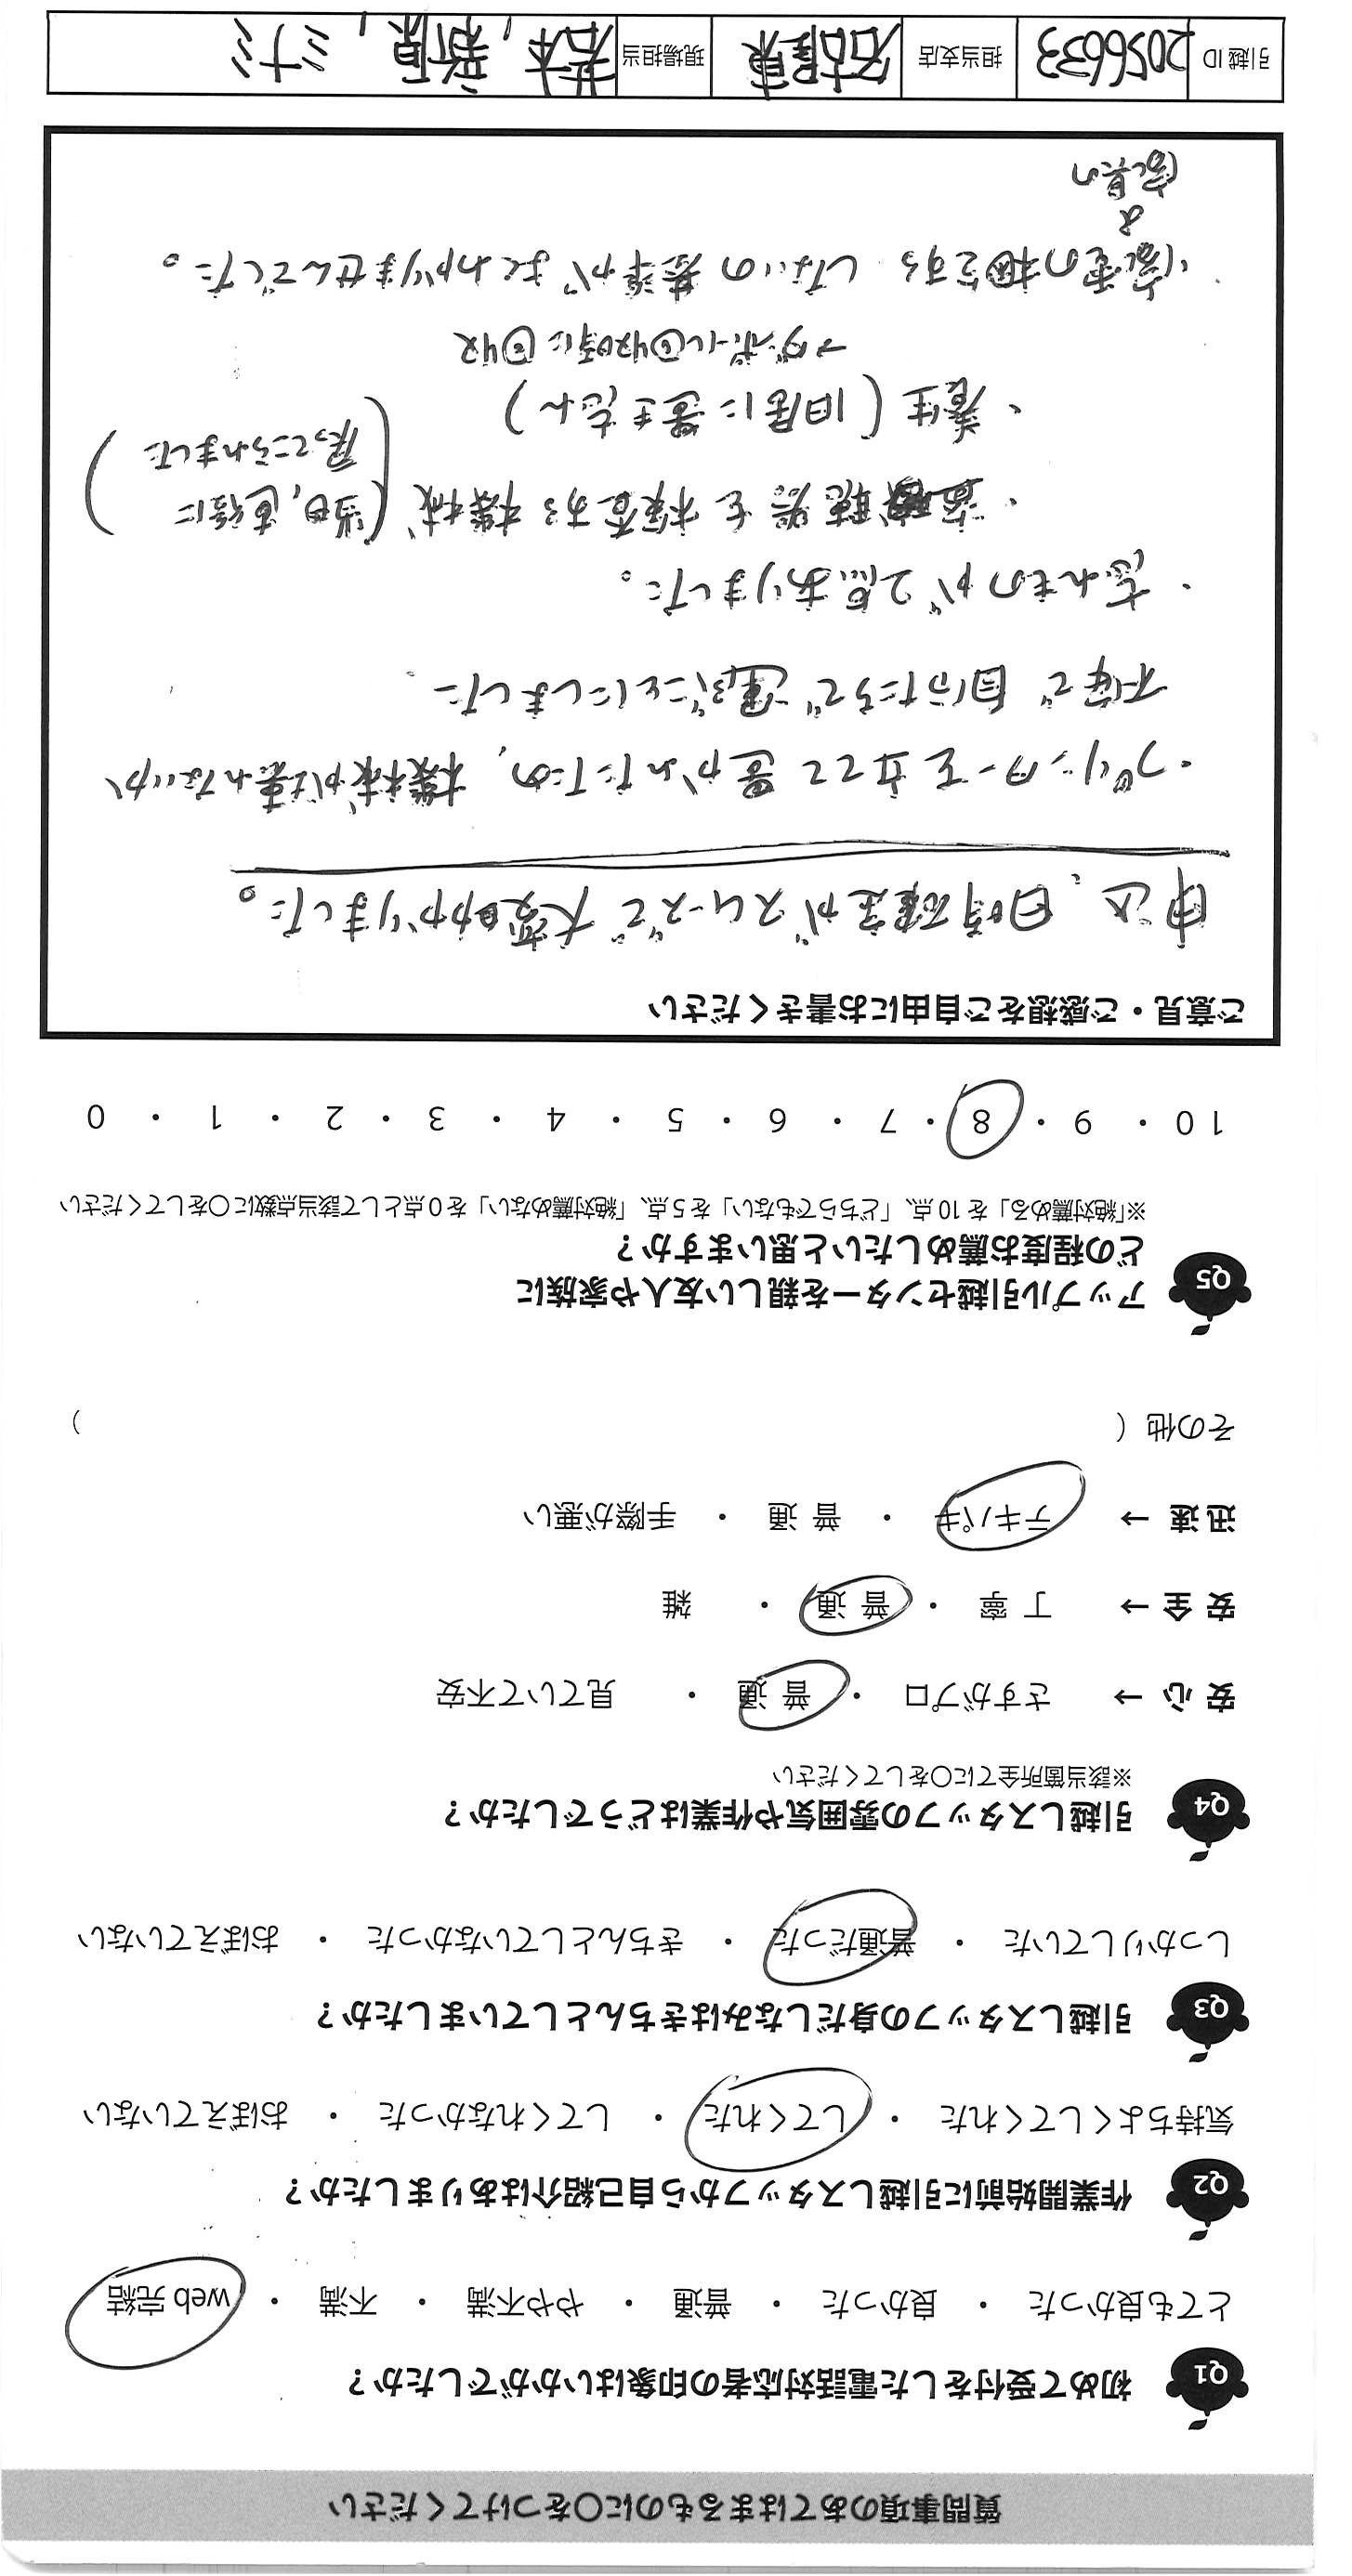 質問事項のあてはまるものに〇をつけてください
Q1 初めて受付をした電話対応者の印象はいかがでしたか？
とても良かった ・ 良かった ・ 普通 ・ やや不満 ・ 不満 ・ web 完結
Q2 作業開始前に引越しスタッフから自己紹介はありましたか？
気持ちよくしてくれた ・ してくれた ・ してくれなかった ・ おぼえていない
Q3 引越しスタッフの身だしなみはきちんとしていましたか？
しっかりしていた ・ 普通だった ・ きちんとしていなかった ・ おぼえていない
Q4 引越しスタッフの雰囲気や作業はどうでしたか？
※該当箇所全てに〇をしてください
安 心 → さすがプロ ・ 普 通 ・ 見ていて不安
安 全 → 丁 寧 ・ 普 通 ・ 雑
迅 速 → テキパキ ・ 普 通 ・ 手際が悪い
その他（ ）
Q5 アップル引越センターを親しい友人や家族に
どの程度お薦めしたいと思いますか？
※「絶対薦める」を 10 点、「どちらでもない」を 5 点、「絶対薦めない」を 0 点として該当点数に〇をしてください
10 ・ 9 ・ 8 ・ 7 ・ 6 ・ 5 ・ 4 ・ 3 ・ 2 ・ 1 ・ 0
ご意見・ご感想をご自由にお書きください
申込、日時確定がスムーズで大変助かりました。
・プリンターを立てて置かれたため、機械が壊れないか
不安で自分たちで運ぶことにしました
・忘れものが2点ありました。
・盗聴器を検査する機械（当日、直後に
戻ってこられました）
・養生（旧居に置き忘れ）
→ダンボール回収時に回収
・家電の梱包する しないの基準がよくわかりませんでした。
&
家具の
引越 ID 2056633 担当支店 名古屋東 現場担当 岩本, 新原, ミナミ